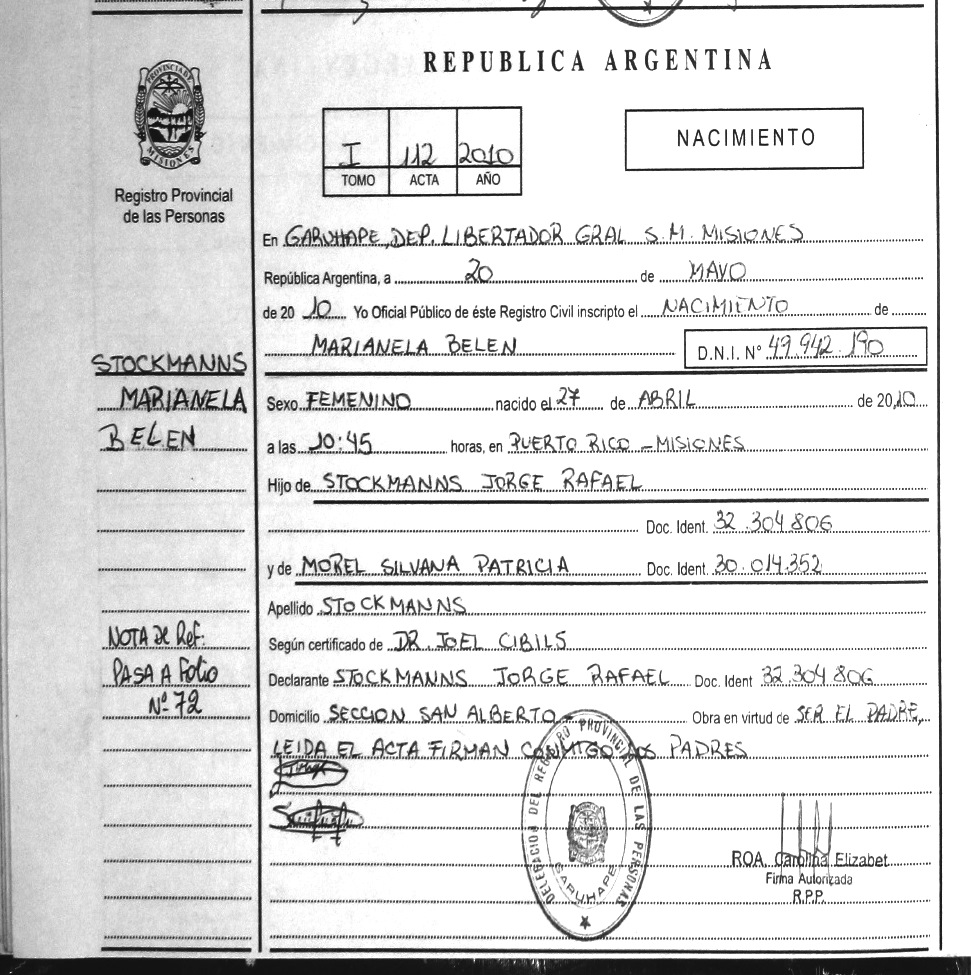 REPUBLICA ARGENTINA
PROVINCIA DE MISIONES
Registro Provincial
de las Personas
I 112 2010
TOMO ACTA AÑO
NACIMIENTO
En GARUHAPE, DEP. LIBERTADOR GRAL S.M. MISIONES
República Argentina, a 20 de MAYO
de 20 10 Yo Oficial Público de éste Registro Civil inscripto el NACIMIENTO de
MARIANELA BELEN D.N.I. Nº 49.942.190
STOCKMANNS
MARIANELA
BELEN
Sexo FEMENINO nacido el 27 de ABRIL de 20,10
a las 10:45 horas, en PUERTO RICO - MISIONES
Hijo de STOCKMANNS JORGE RAFAEL
Doc. Ident. 32.304.806
y de MOREL SILVANA PATRICIA Doc. Ident. 30.014.352
Apellido STOCKMANNS
Según certificado de DR. JOEL CIBILS
Declarante STOCKMANNS JORGE RAFAEL Doc. Ident 32.304.806
Domicilio SECCION SAN ALBERTO - Obra en virtud de SER EL PADRE,
LEIDA EL ACTA FIRMAN CONMIGO LOS PADRES
NOTA DE Ref:
PASA A Folio
Nº 72
DELEGACION DEL REGISTRO PROVINCIAL DE LAS PERSONAS
GARUHAPE
ROA, Carolina Elizabet
Firma Autorizada
R.P.P.